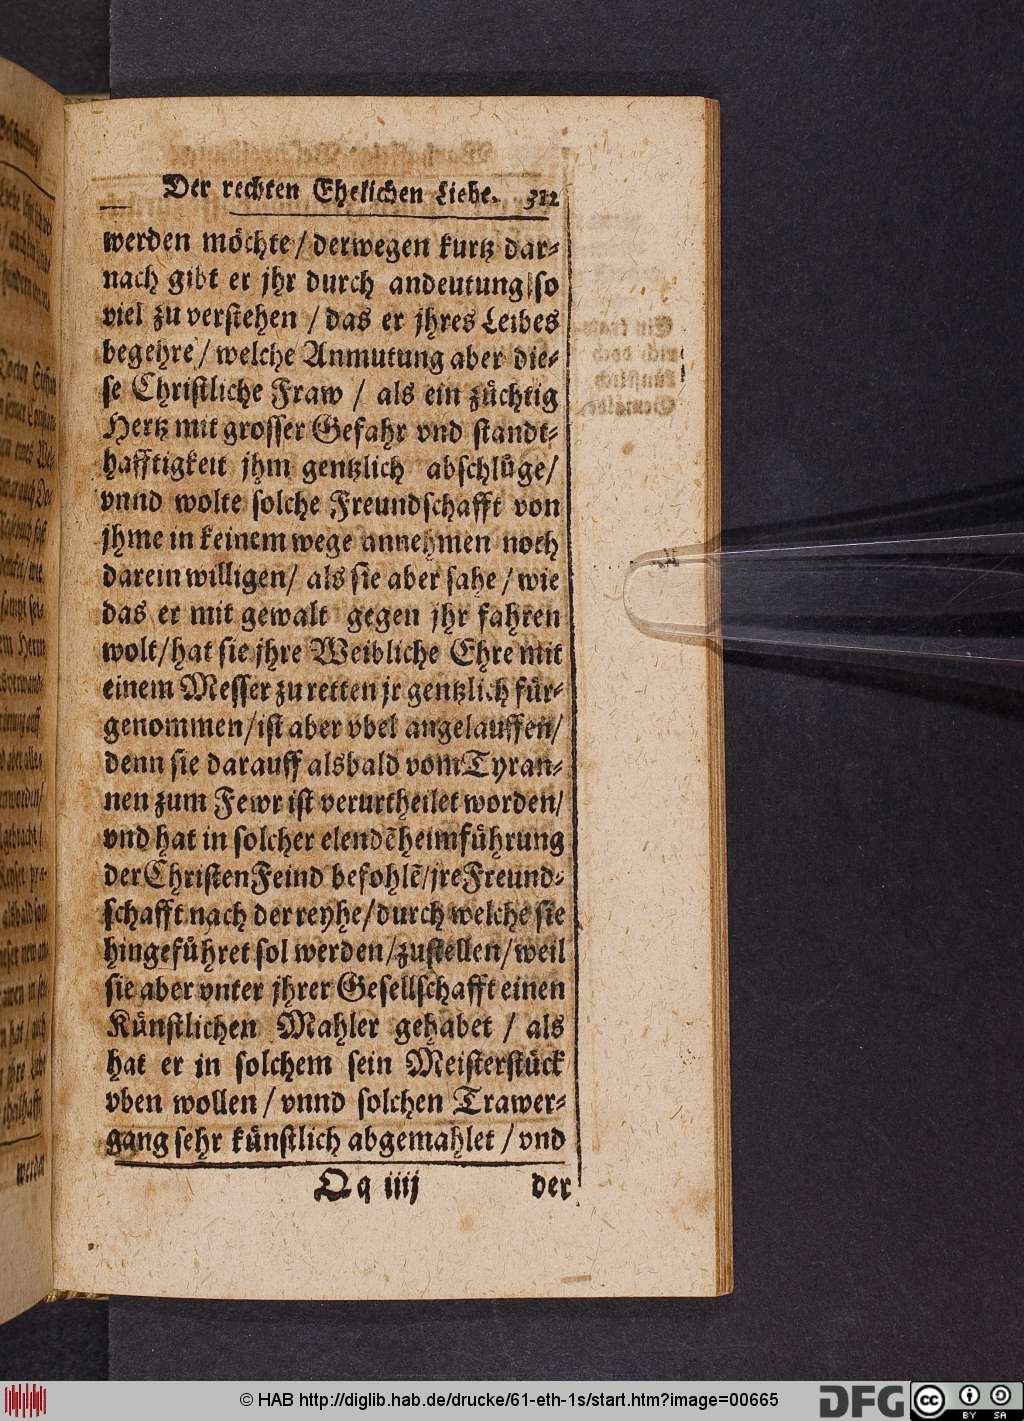 Der rechten Ehelichen Liebe. 312
werden möchte / derwegen kurtz dar-
nach gibt er jhr durch andeutung so
viel zu verstehen / das er jhres Leibes
begehre / welche Anmutung aber die-
se Christliche Fraw / als ein züchtig
Hertz mit grosser Gefahr vnd standt-
hafftigkeit jhm gentzlich abschlüge /
vnnd wolte solche Freundschafft von
jhme in keinem wege annehmen noch
darein willigen / als sie aber sahe / wie
das er mit gewalt gegen jhr fahren
wolt / hat sie jhre Weibliche Ehre mit
einem Messer zu retten jr gentzlich für-
genommen / ist aber vbel angelauffen /
denn sie darauff alsbald vom Tyran-
nen zum Fewr ist verurtheilet worden /
vnd hat in solcher elendẽ heimführung
der Christen Feind befohlẽ / jre Freund-
schafft nach der reyhe / durch welche sie
hingeführet sol werden / zustellen / weil
sie aber vnter jhrer Gesellschafft einen
Künstlichen Mahler gehabet / als
hat er in solchem sein Meisterstück
vben wollen / vnnd solchen Trawer-
gang sehr künstlich abgemahlet / vnd
Qq iiij der
© HAB http://diglib.hab.de/drucke/61-eth-1s/start.htm?image=00665
DFG
cc BY SA